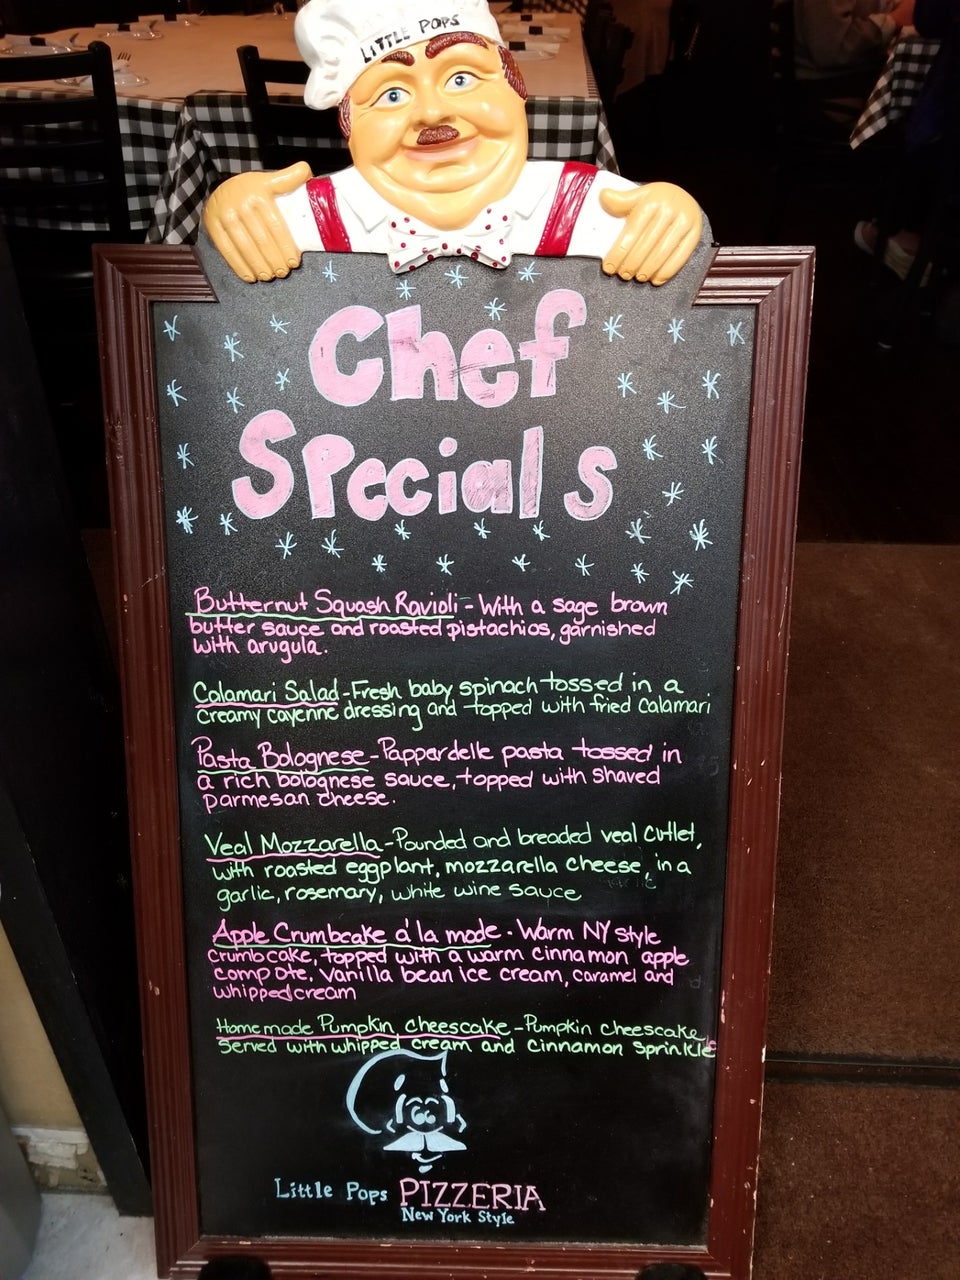 LITTLE POPS
Chef
Specials
Butternut Squash Ravioli - With a sage brown
butter sauce and roasted pistachios, garnished
with arugula.
Calamari Salad - Fresh baby spinach tossed in a
creamy cayenne dressing and topped with fried calamari
Pasta Bolognese - Pappardelle pasta tossed in
a rich bolognese sauce, topped with shaved
parmesan cheese.
Veal Mozzarella - Pounded and breaded veal cutlet,
with roasted eggplant, mozzarella cheese, in a
garlic, rosemary, white wine sauce
Apple Crumbcake a' la mode - Warm NY style
crumbcake, topped with a warm cinnamon apple
compote, vanilla bean ice cream, caramel and
whipped cream
Homemade Pumpkin Cheescake - Pumpkin cheescake
served with whipped cream and cinnamon sprinkle
Little Pops PIZZERIA
New York Style